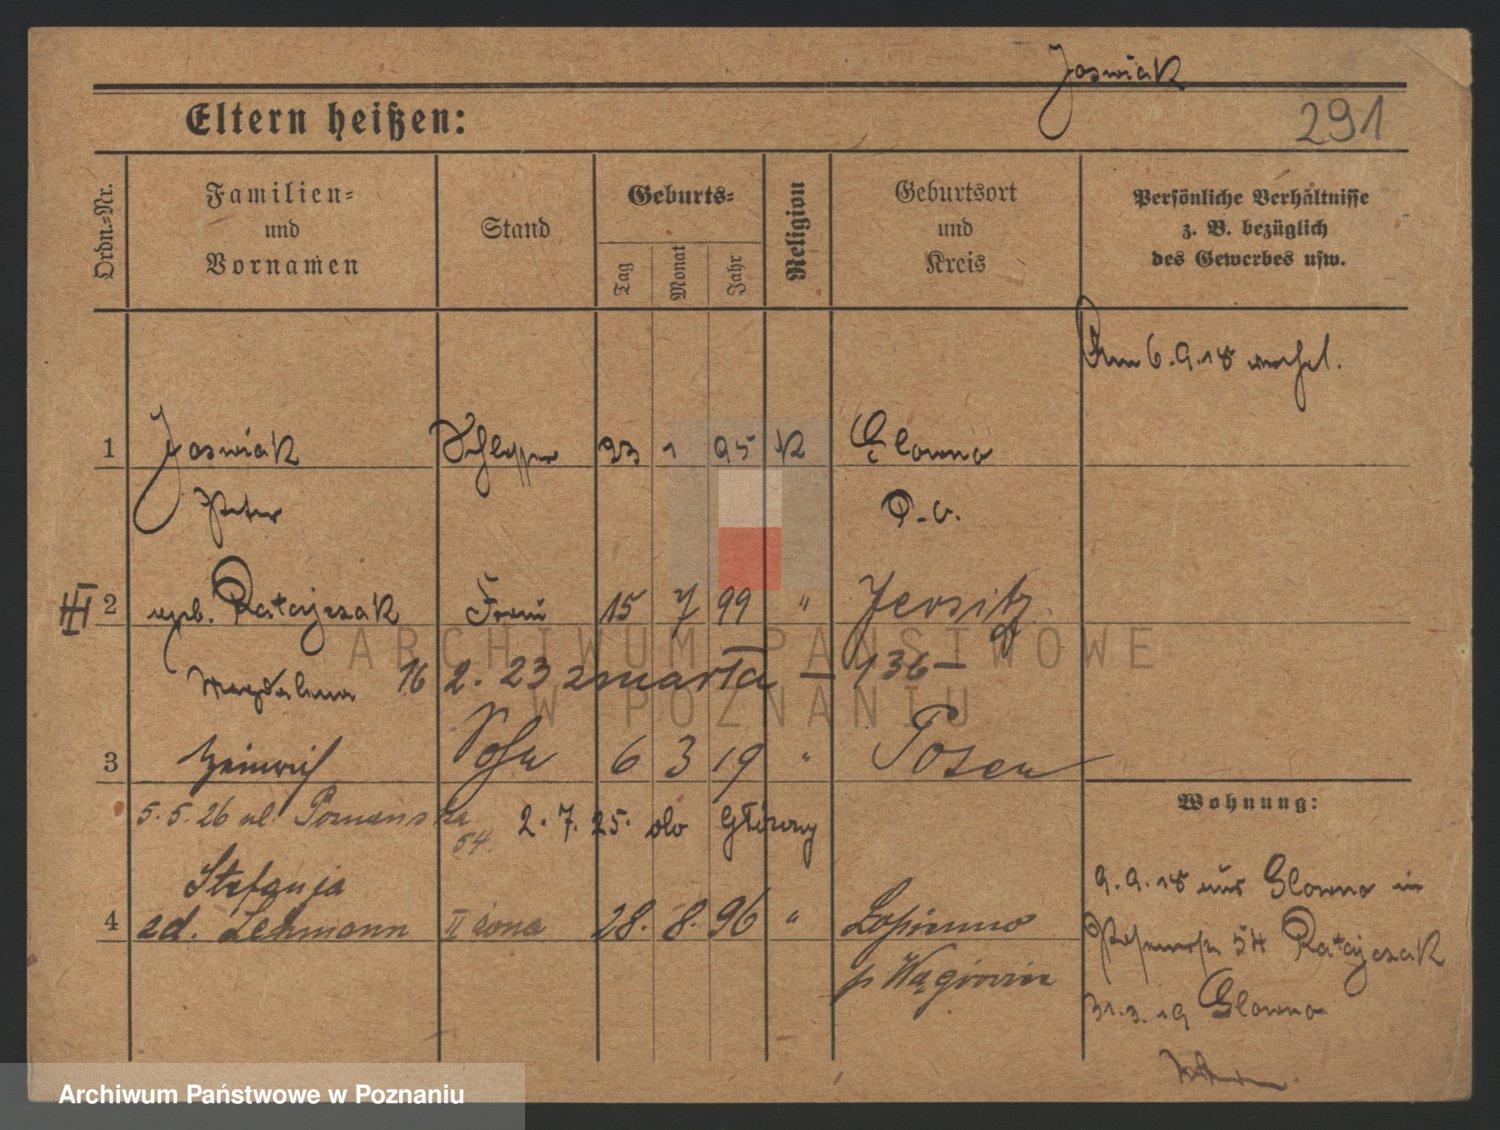 Joswiak
Eltern heißen:
291
Ordn.-Nr.
Familien-
und
Vornamen
Stand
Geburts-
Tag
Monat
Jahr
Religion
Geburtsort
und
Kreis
Persönliche Verhältnisse
z. B. bezüglich
des Gewerbes usw.
Am 6.9.18
1 Joswiak 23 1 95 K Glowno
Peter P.-O.
III 2 geb. Ratajczak Frau 15 7 99 " Jersitz
Magdalena 16 2. 23 zmarła — 136 —
3 Heinrich Sohn 6 3 19 " Posen
5.5.26 ul. Poznańska 54. 2.7.25. do Główny
Wohnung:
Stefanja
4 zd. Lehmann II żona 28. 8. 96 " Łopienno
p Wągrowiec
9.9.18 aus Glowno in
54 Ratajczak
31.3.19 Glowno
ARCHIWUM PAŃSTWOWE
W POZNANIU
Archiwum Państwowe w Poznaniu